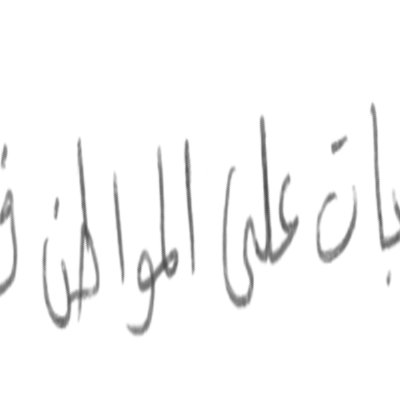 بات على المواطن